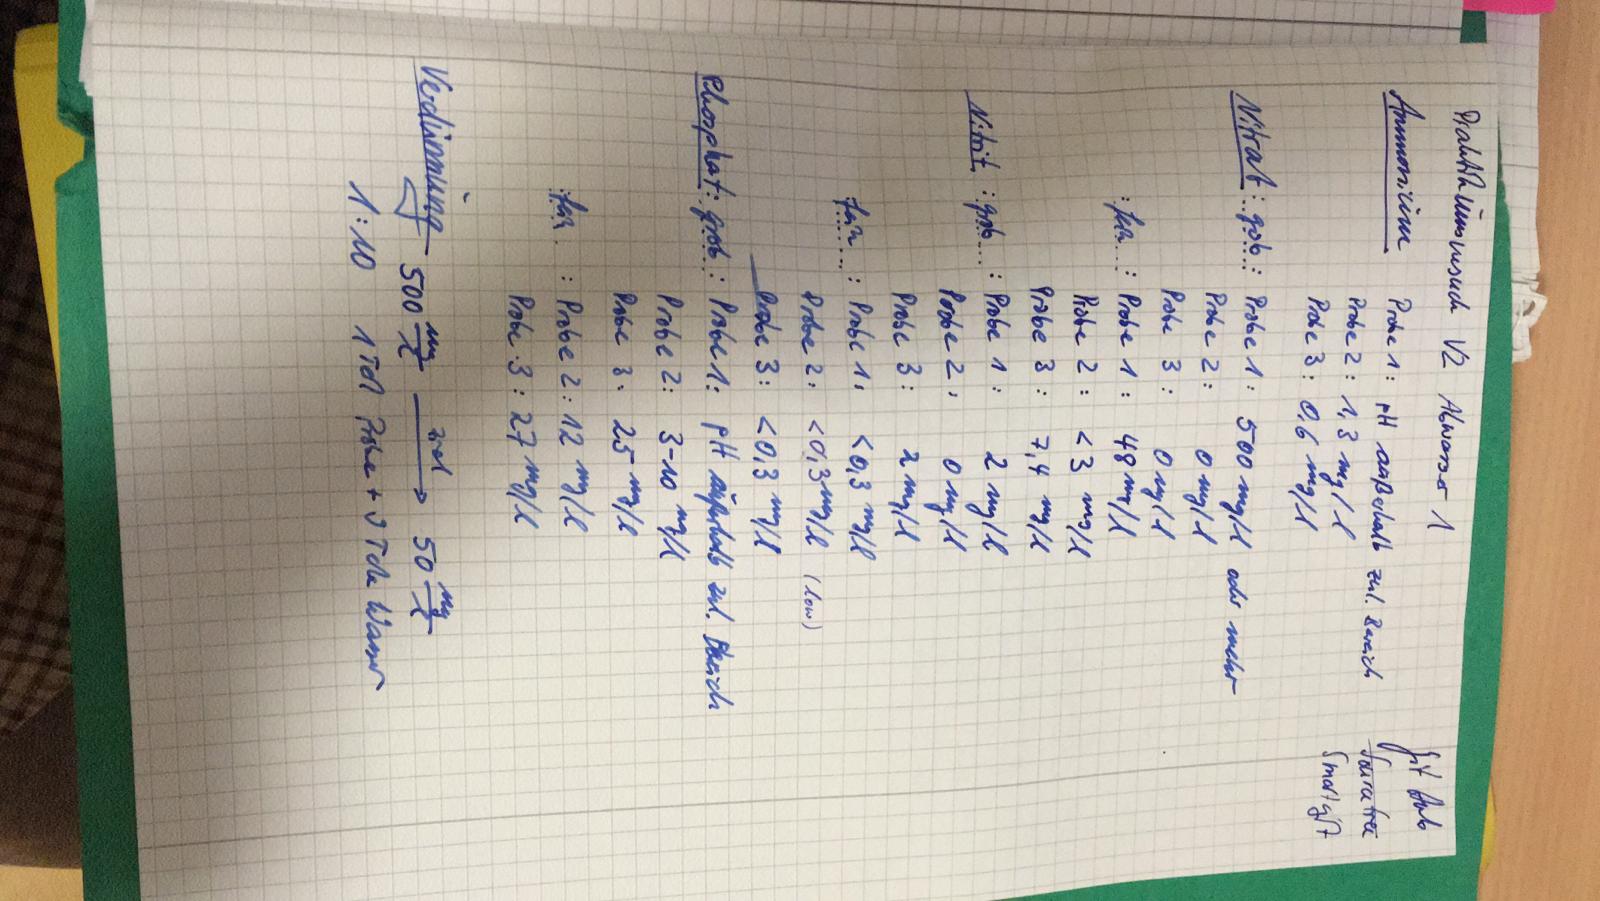 Praktikumsversuch V2 Abwasser 1
Git Hub
Sourcetree
Smartgit
Ammonium Probe 1: pH außerhalb zul. Bereich
Probe 2: 1,3 mg/l
Probe 3: 0,6 mg/l
Nitrat: grob: Probe 1: 500 mg/l oder mehr
Probe 2: 0 mg/l
Probe 3: 0 mg/l
: fein : Probe 1: 48 mg/l
Probe 2: <3 mg/l
Probe 3: 7,4 mg/l
Nitrit : grob : Probe 1: 2 mg/l
Probe 2: 0 mg/l
Probe 3: 2 mg/l
fein : Probe 1: <0,3 mg/l
Probe 2: <0,3 mg/l (low)
Probe 3: <0,3 mg/l
Phosphat: grob: Probe 1: pH außerhalb zul. Bereich
Probe 2: 3-10 mg/l
Probe 3: 25 mg/l
fein : Probe 2: 12 mg/l
Probe 3: 27 mg/l
Verdünnung 500 mg/l Ziel → 50 mg/l
1:10 1 Teil Probe + 9 Teile Wasser